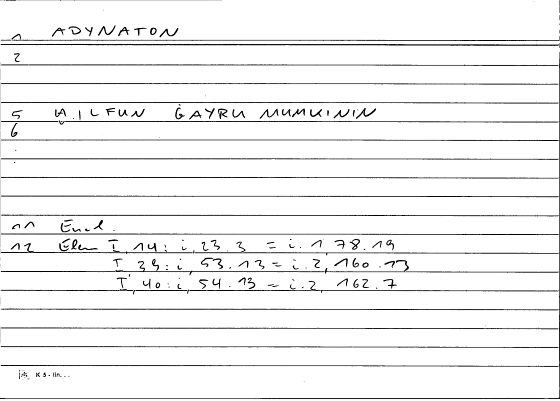 1 ADYNATON
2
5 Ḫ.ILFUN ĠAYRU MUMKININ
6
.
.
11 Eucl.
12 Elem I, 14: i, 23.3 = i.1, 78.19
I, 39: i, 53.13 = i.2, 160.13
I, 40: i, 54.13 = i.2, 162.7
K 5 - lin...